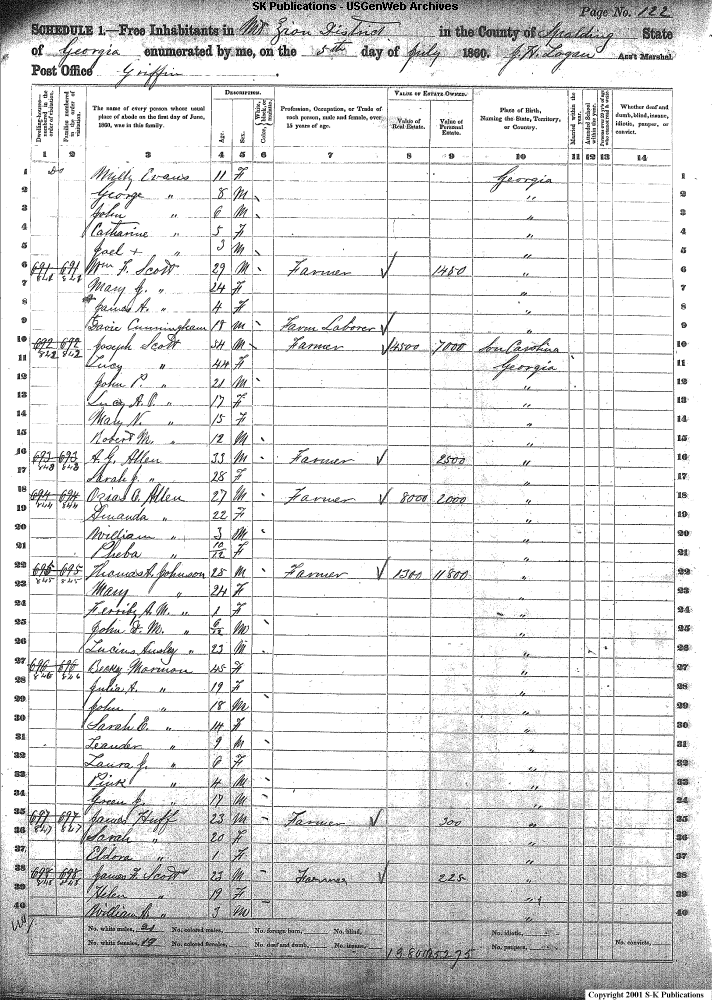 SK Publications - USGenWeb Archives
Page No. 122
SCHEDULE 1.—Free Inhabitants in Mt Zion District in the County of Spalding State
of Georgia enumerated by me, on the 5th day of July 1860. J. H. Logan Ass't Marshal.
Post Office Griffin
Dwelling-houses numbered in the order of visitation.
Families numbered in the order of visitation.
The name of every person whose usual place of abode on the first day of June, 1860, was in this family.
DESCRIPTION.
Age.
Sex.
Color, White, black, or mulatto.
Profession, Occupation, or Trade of each person, male and female, over 15 years of age.
VALUE OF ESTATE OWNED.
Value of Real Estate.
Value of Personal Estate.
Place of Birth, Naming the State, Territory, or Country.
Married within the year.
Attended School within the year.
Whether deaf and dumb, blind, insane, idiotic, pauper, or convict.
1 2 3 4 5 6 7 8 9 10 11 12 13 14
1 Do Milly Evans 11 F Georgia 1
2 George " 8 M " 2
3 John " 6 M " 3
4 Catharine " 5 F " 4
5 Joel + " 3 M " 5
6 691 691 Wm F. Scott 29 M Farmer 1450 " 6
7 Mary J. " 24 F " 7
8 James A. " 4 F " 8
9 Davie Cunningham 18 M Farm Laborer " 9
10 692 692 Joseph Scott 54 M Farmer 4500 7000 Sou Carolina 10
11 842 842 Lucy " 44 F Georgia 11
12 John P. " 21 M " 12
13 Lucy A. P. " 17 F " 13
14 Mary N. " 15 F " 14
15 Robert M. " 12 M " 15
16 693 693 A. G. Allen 33 M Farmer 2500 " 16
17 843 843 Sarah J. " 28 F " 17
18 694 694 Ozias O. Allen 27 M Farmer 8000 2000 " 18
19 844 844 Amanda " 22 F " 19
20 William " 3 M " 20
21 Pheba " 10/12 F " 21
22 695 695 Thomas A. Johnson 28 M Farmer 1300 11800 " 22
23 845 845 Mary " 24 F " 23
24 Ferriby A. M. " 1 F " 24
25 John D. M. " 6/12 M " 25
26 Lucius Ansley " 23 M " 26
27 696 696 Becky Mormon 45 F " 27
28 846 846 Julia A. " 19 F " 28
29 John " 18 M " 29
30 Sarah E. " 14 F " 30
31 Leander " 9 M " 31
32 Laura J. " 6 F " 32
33 Pink " 4 M " 33
34 Green J. " 17 M " 34
35 697 697 James Huff 23 M Farmer 300 " 35
36 847 847 Sarah " 20 F " 36
37 Eldora " 1 F " 37
38 698 698 James F. Scott 23 M Farmer 225 " 38
39 848 848 Helen " 19 F " 39
40 William A. " 3 M " 40
No. white males, 21 No. colored males, No. foreign born, No. blind, No. idiotic, No. convicts,
No. white females, 19 No. colored females, No. deaf and dumb, No. insane, No. paupers,
Copyright 2001 S-K Publications